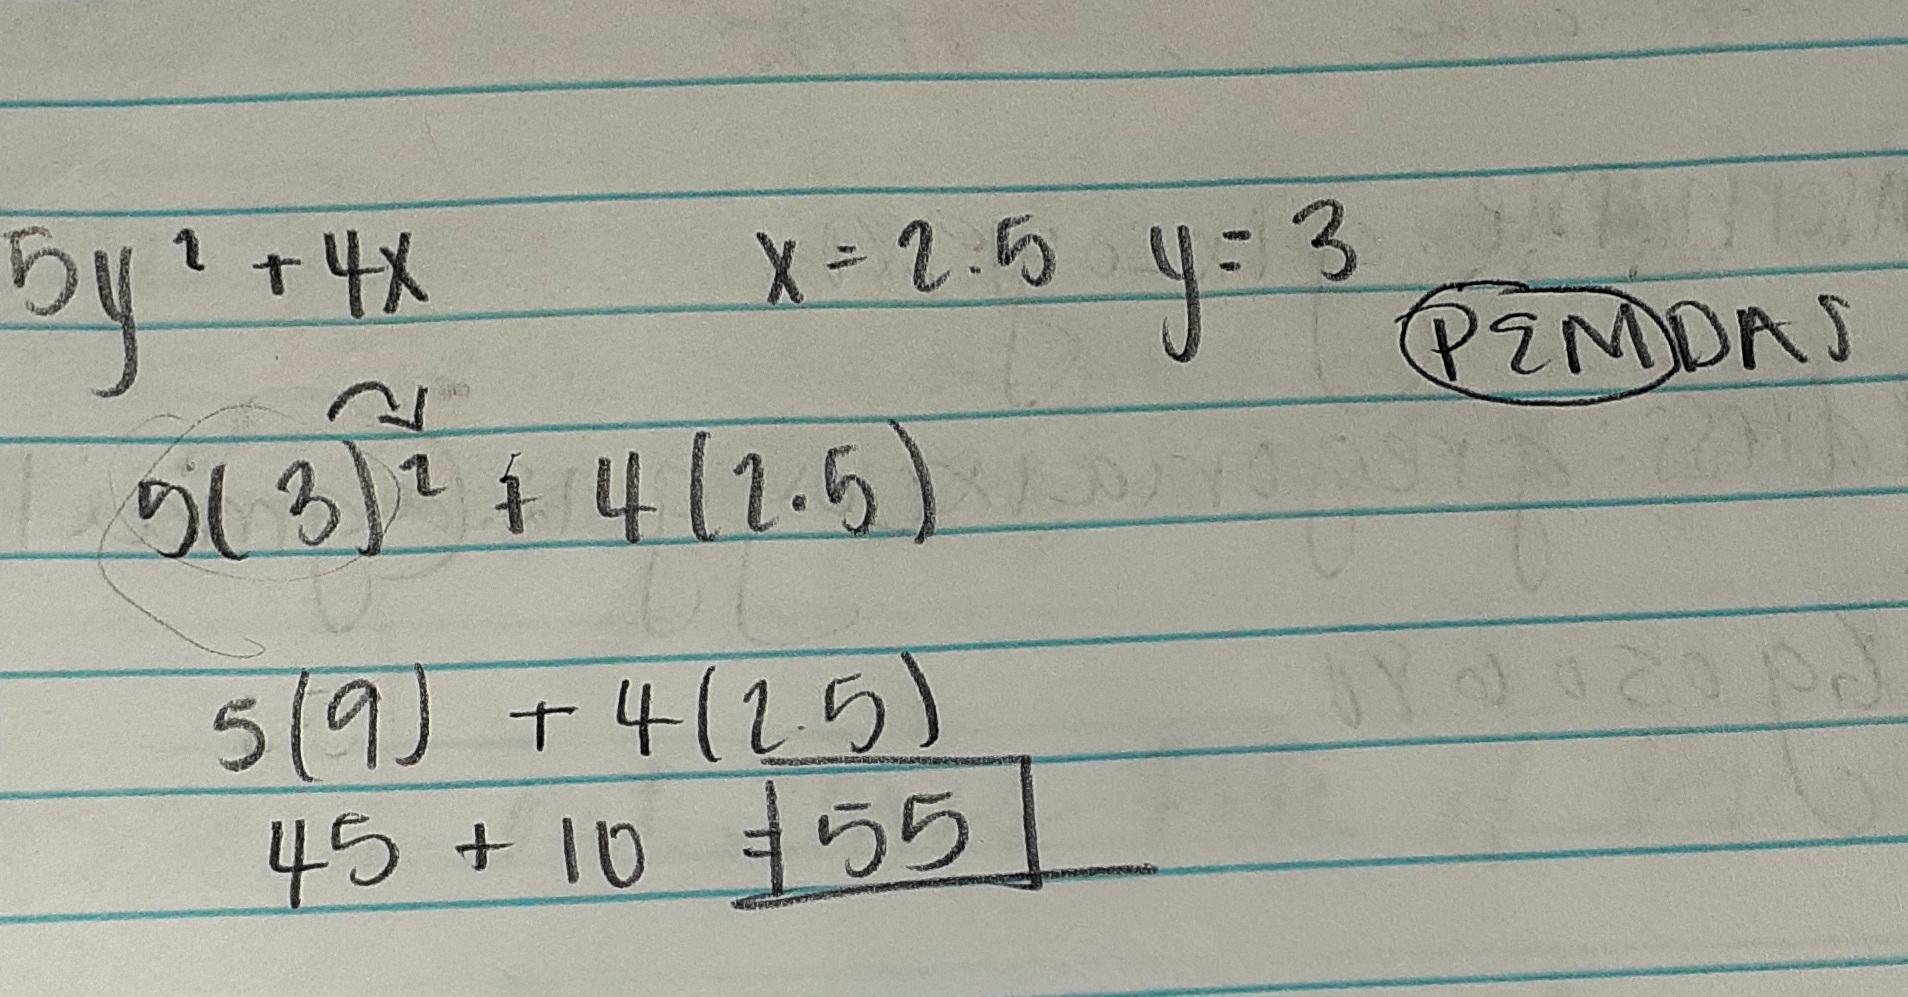 5y² + 4x x = 2.5 y = 3
PEMDAS
5(3)² + 4(2.5)
5(9) + 4(2.5)
45 + 10 = 55